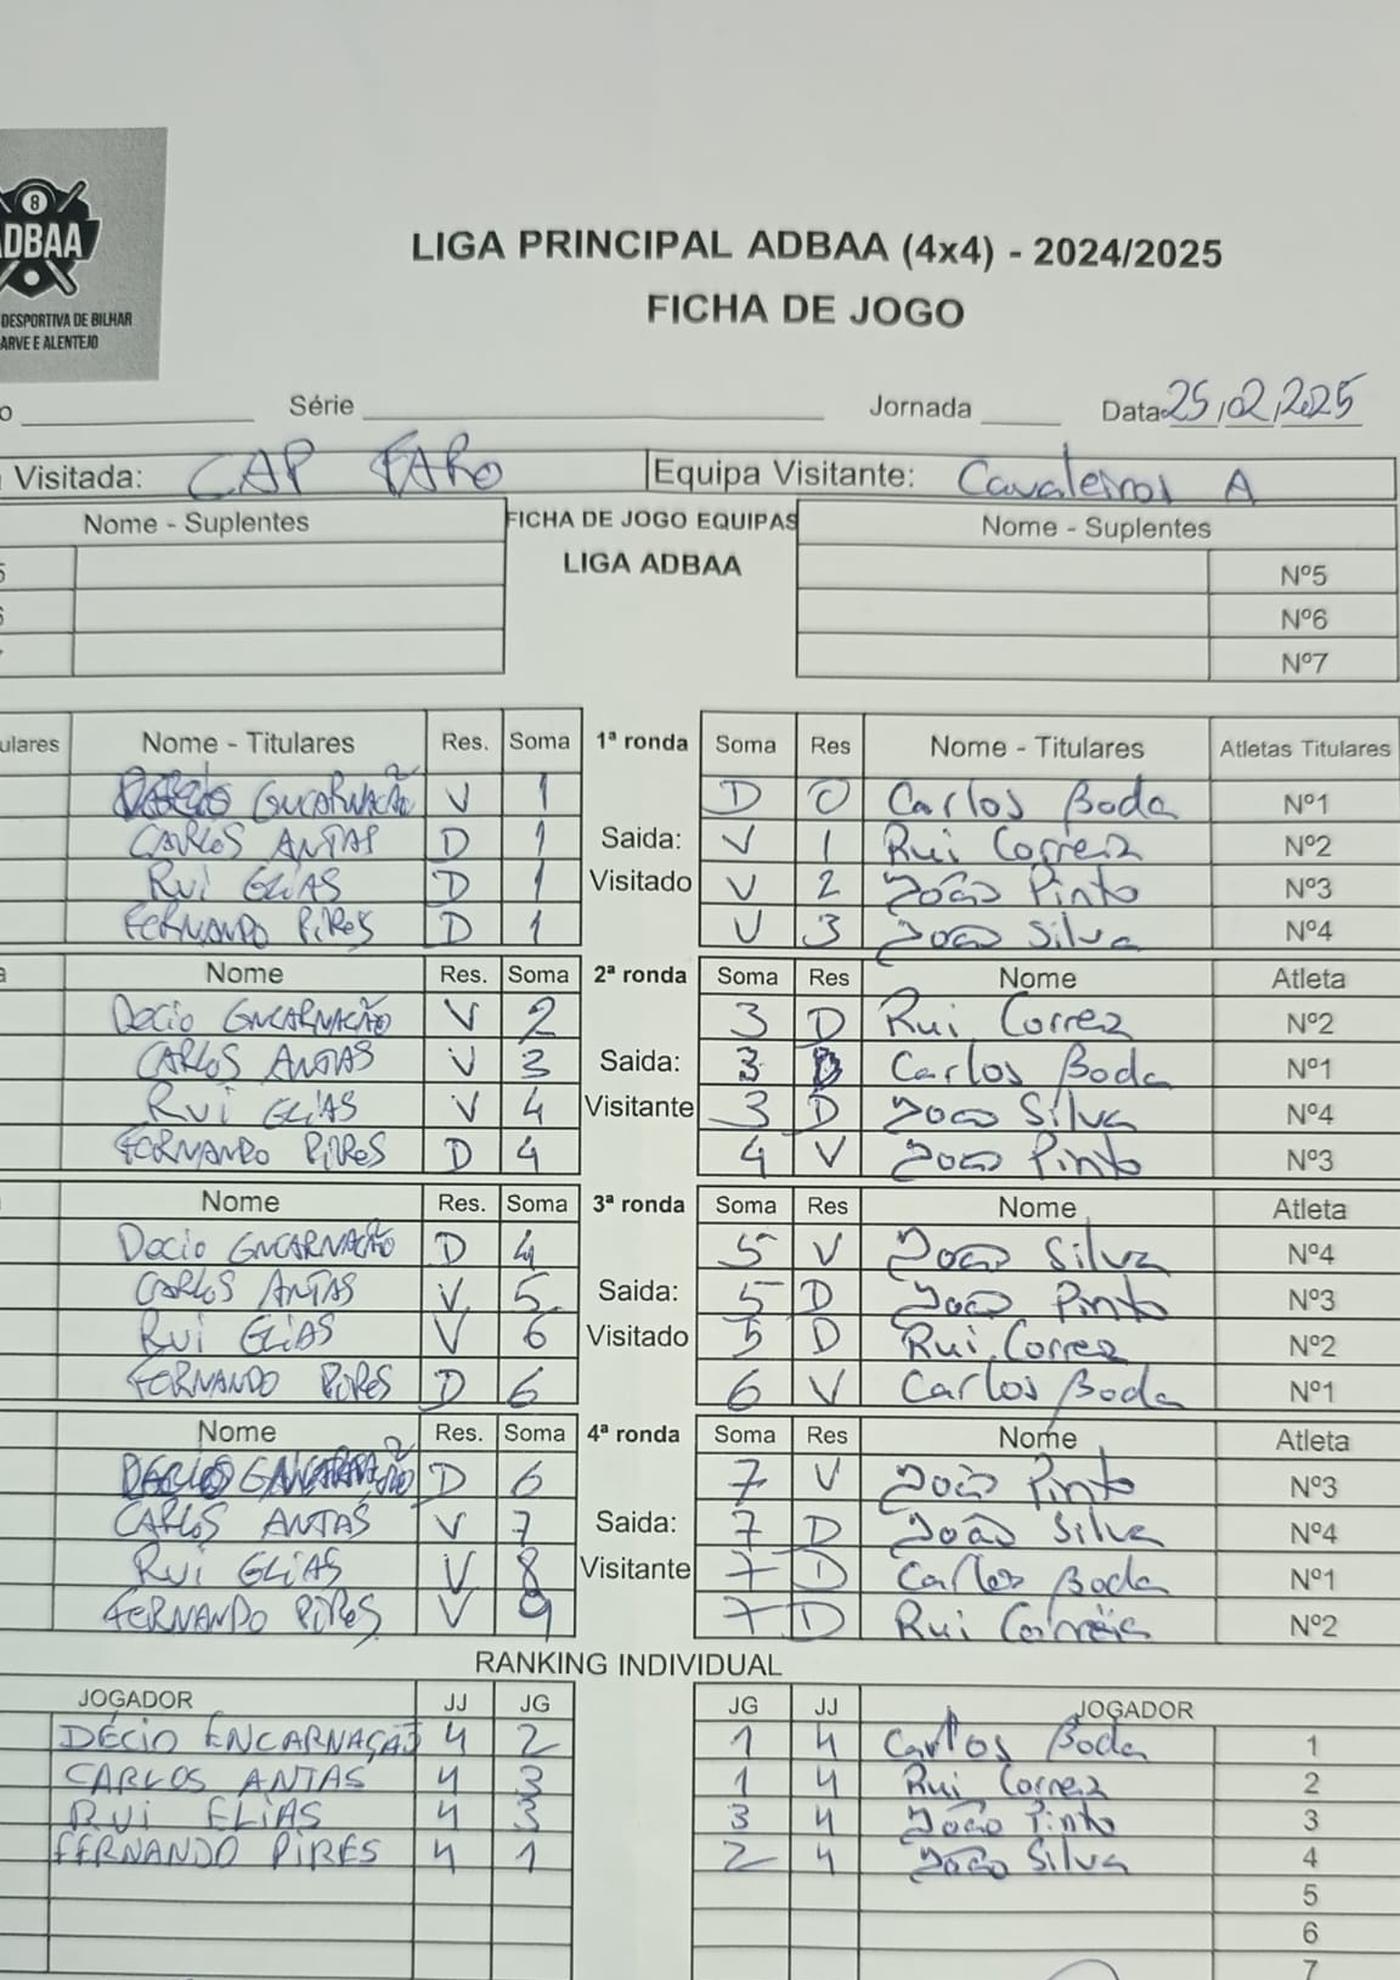 8
ADBAA
DESPORTIVA DE BILHAR
ARVE E ALENTEJO
LIGA PRINCIPAL ADBAA (4x4) - 2024/2025
FICHA DE JOGO
o Série Jornada Data 25/02/2025
Visitada: CAP FARO Equipa Visitante: Cavaleiros A
Nome - Suplentes FICHA DE JOGO EQUIPAS Nome - Suplentes
LIGA ADBAA
Nº5
Nº6
Nº7
ulares Nome - Titulares Res. Soma 1ª ronda Soma Res Nome - Titulares Atletas Titulares
ENCARNAÇÃO V 1 D 0 Carlos Boda Nº1
CARLOS ANTAS D 1 Saida: V 1 Rui Correia Nº2
RUI ELIAS D 1 Visitado V 2 João Pinto Nº3
FERNANDO PIRES D 1 V 3 João Silva Nº4
a Nome Res. Soma 2ª ronda Soma Res Nome Atleta
Decio ENCARNAÇÃO V 2 3 D Rui Correia Nº2
CARLOS ANTAS V 3 Saida: 3 D Carlos Boda Nº1
RUI ELIAS V 4 Visitante 3 D João Silva Nº4
FERNANDO PIRES D 4 4 V João Pinto Nº3
Nome Res. Soma 3ª ronda Soma Res Nome Atleta
Decio ENCARNAÇÃO D 4 5 V João Silva Nº4
CARLOS ANTAS V 5 Saida: 5 D João Pinto Nº3
RUI ELIAS V 6 Visitado 5 D Rui Correia Nº2
FERNANDO PIRES D 6 6 V Carlos Boda Nº1
Nome Res. Soma 4ª ronda Soma Res Nome Atleta
D 6 7 V João Pinto Nº3
CARLOS ANTAS V 7 Saida: 7 D João Silva Nº4
RUI ELIAS V 8 Visitante 7 D Carlos Boda Nº1
FERNANDO PIRES V 9 7 D Rui Correia Nº2
RANKING INDIVIDUAL
JOGADOR JJ JG JG JJ JOGADOR
DÉCIO ENCARNAÇÃO 4 2 1 4 Carlos Boda 1
CARLOS ANTAS 4 3 1 4 Rui Correia 2
RUI ELIAS 4 3 3 4 João Pinto 3
FERNANDO PIRES 4 1 2 4 João Silva 4
5
6
7